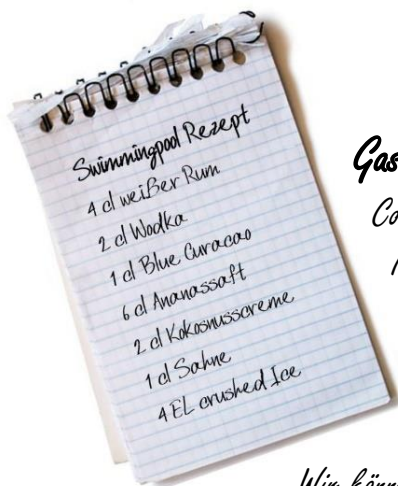 Swimmingpool Rezept
4 cl weißer Rum
2 cl Wodka
1 cl Blue Curacao
6 cl Ananassaft
2 cl Kokosnusscreme
1 cl Sahne
4 EL crushed Ice
Gas
Co
Wir könn